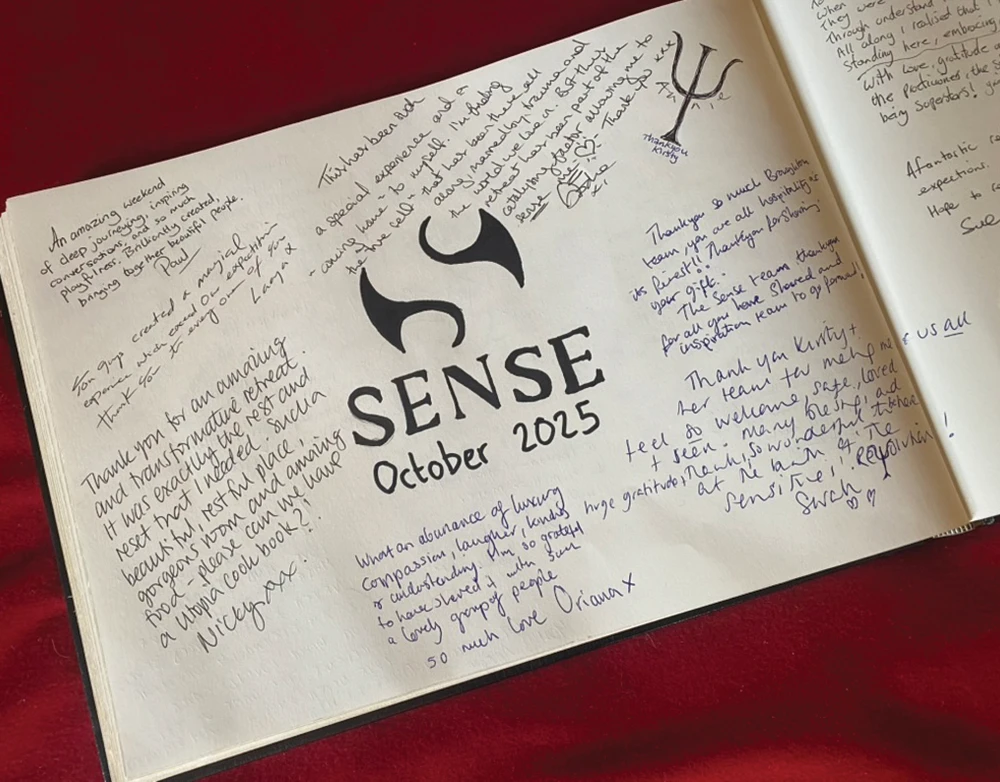 An amazing weekend
of deep journeying, inspiring
conversations, and so much
playfulness. Brilliantly created,
bringing together beautiful people.
Paul
created a magical
experience which exceed Our expectation
thank you for everyone
Thankyou for an amazing
and transformative retreat.
It was exactly the rest and
reset that I needed. Such a
beautiful, restful place,
gorgeous room and amazing
food - please can we have
a utopia cook book?!
Nicky xxx.
This has been such
a special experience and a
"coming home" to myself. I'm finding
the true self - that has been there all
along, marred by trauma and
the world we live in. But this
retreat has been part of the
catalysing factor allowing me to
sense
Thank you xxx
Thankyou
Kirsty
SENSE
October 2025
Thankyou so much Broughton
team you are all hospitality @
its finest!! Thankyou for sharing
your gift.
The Sense team thankyou
for all you have showed and
inspiration team to go forward.
Thank you Kirsty +
her team for
feel so welcome, safe, loved
+ seen. many and
huge gratitude, Thank, so wonderful
at the of the
sensitive!! Revolution!
What an abundance of luxury
compassion, laughter, kindness
& understanding. I'm so grateful
to have shared it with such
a lovely group of people
so much love Oriana x
When
They were
Through understand
All along, I realised that I
standing here, embracing
With love, gratitude
the practitioners, the
being superstars!
A fantastic
expectations.
Hope to
Sue